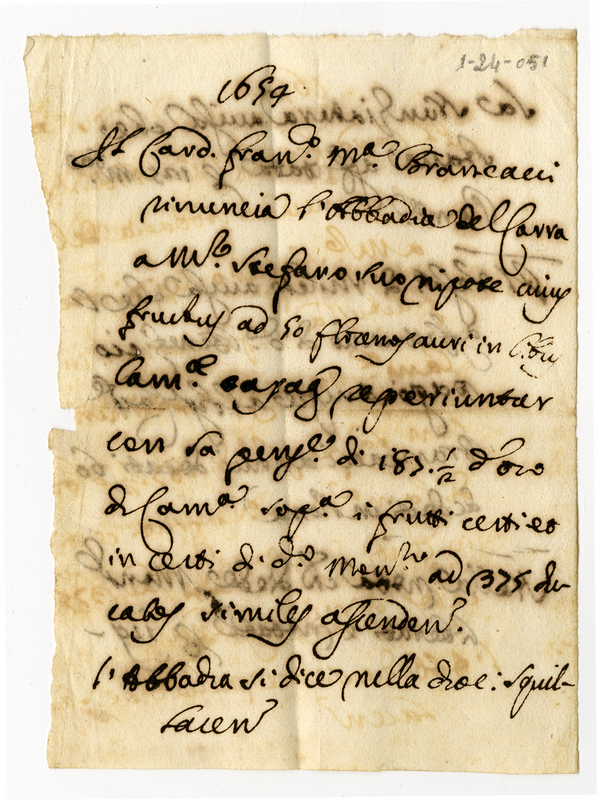 1-24-051
1654
Il Card. Fran.co M.a Brancacci
rinuncia l'Abbadia del Carra
a M.r Stefano suo nipote cuius
fructus ad 50 florenos auri in libris
Cam.ae taxati reperiuntur
con la pens.e di 187. 1/2 d'oro
di Cam.a sop.a i frutti certi et
incerti di d.o Mon.rio ad 375 du-
catos similes ascenden.
l'Abbadia si dice nella dioc: Squil-
lacen